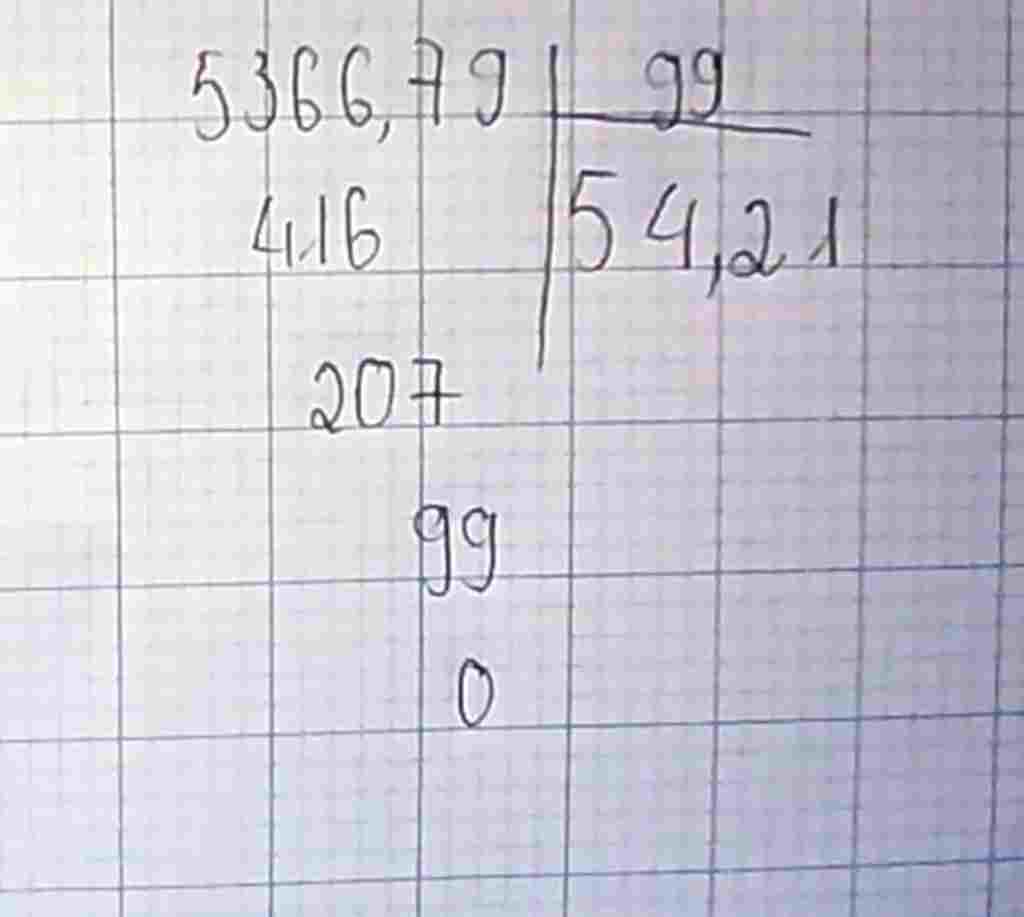 5366,79 99
416 54,21
207
99
0